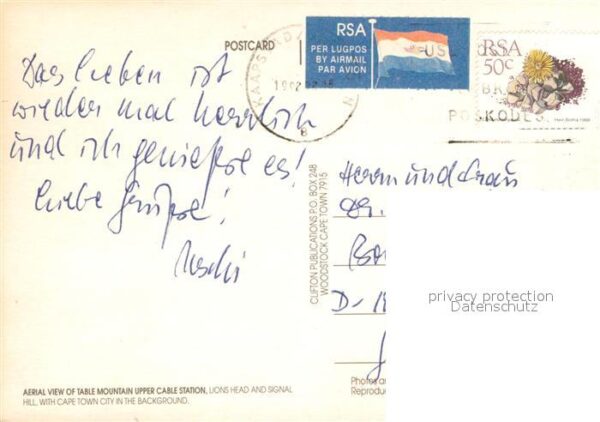 POSTCARD
RSA
PER LUGPOS
BY AIRMAIL
PAR AVION
RSA
50c
KAAPSTAD
USE
POSKODES
8
Das Leben ist
wieder mal herrlich
und ich genieße es!
Liebe Grüße!
Uschi
CLIFTON PUBLICATIONS P.O. BOX 248
WOODSTOCK CAPE TOWN 7915
Herrn und Frau
Dr.
D-
privacy protection
Datenschutz
Photos
Reproduc
AERIAL VIEW OF TABLE MOUNTAIN UPPER CABLE STATION, LIONS HEAD AND SIGNAL
HILL, WITH CAPE TOWN CITY IN THE BACKGROUND.